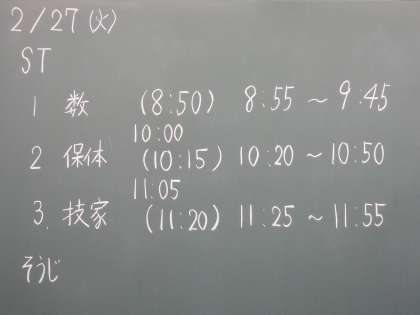 2/27(火)
ST
1 数 (8:50) 8:55～9:45
10:00
2 保体 (10:15) 10:20～10:50
11:05
3. 技家 (11:20) 11:25～11:55
そうじ